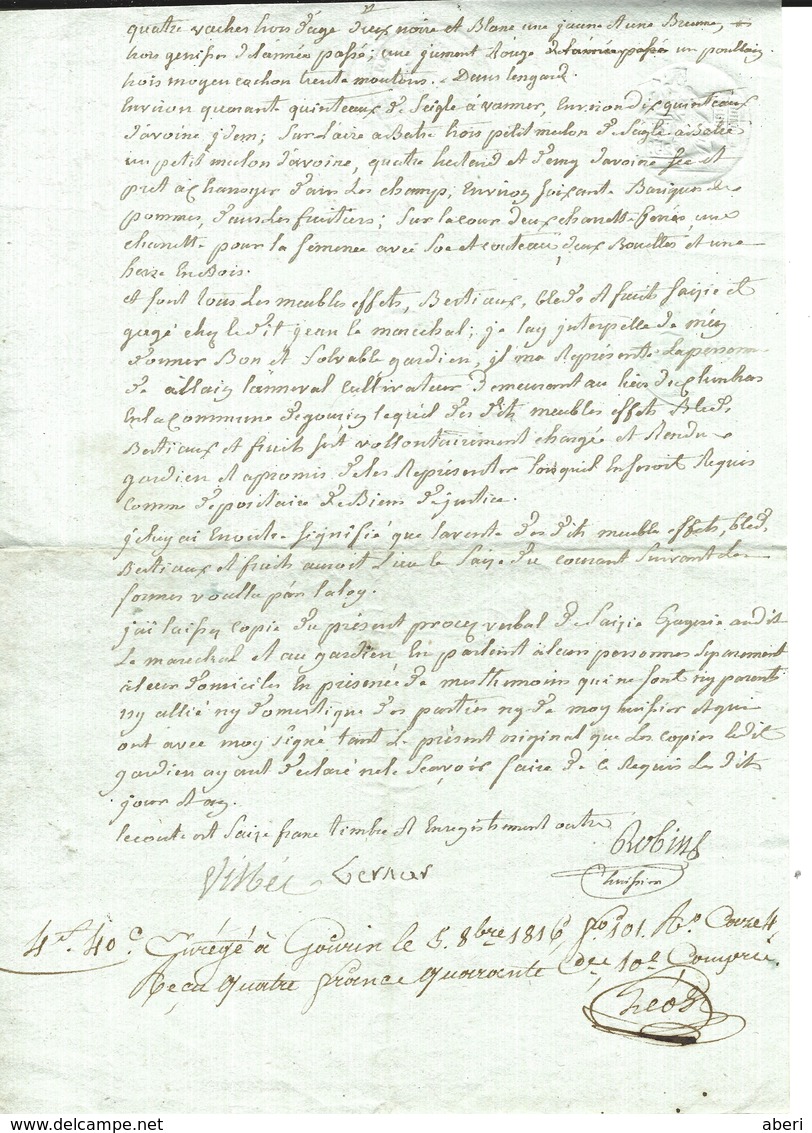 quatre vaches hors d'age deux noire et Blanc une jaune et une Brune,
trois genisses de lannée passé; une jument Rouge un poullain
trois moyen cochon trente moutons. Dans lengard
Environ quarante quinteaux de seigle à vanner, Environ dix quinteaux
d'avoine idem; sur laire a Batre trois petit mulon de seigle
un petit mulon d'avoine, quatre et demy d'avoine et
pret à dans les champs, Environ soixante Bariques de
pommes, dans les fruitiers; sur la cour deux charette une
charette pour la semence avec soc et couteau, deux et une
herse En Bois.
et sont tous les meubles effets, Bestiaux, bleds et fruit saisie et
gagé chez le dit jean le marechal; je lay interpellé de
donner Bon et solvable gardien, il ma Représenté la personne
de allain cultivateur demeurant au lieu de
En la commune de gourin lequel des dits meubles effets Bleds
Bestiaux et fruits s'est vollontairement chargé et Rendu
gardien et a promis de les Représenter lorsquil En seroit Requis
comme depositaire de Biens de justice.
que la vente des dits meuble effets, bleds,
Bestiaux et fruits auroit lieu le saize du courant suivant les
formes voullu par la loy.
j'ai laissé copie du présent procez verbal de saizie Gagerie au dit
Le marechal et au gardien En parlant à leurs personnes séparément
à leur domiciles En présence de mes themoins qui ne sont ny parents
ny allié ny domestique des parties ny de moy huissier et qui
ont avec moy signé tant le présent original que les copies le dit
gardien ayant declaré ne le sçavoir faire de ce Requis les dits
jour et an.
le coute est saize franc timbre et Enregistrement outre
Robin
huissier
4f. 40c. Enrégé à Gourin le 5. 8bre 1816 fo. 101. Ro. Caze 4,
Reçu quatre francs quarante Cmes 10e Compris.